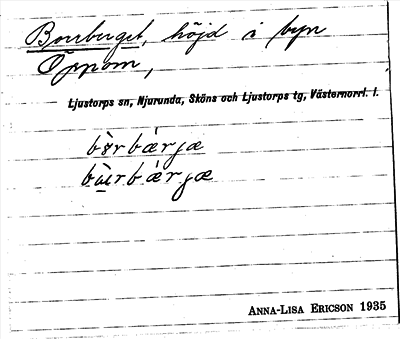 Borrberget, höjd å byn
Öppom,
Ljustorps sn, Njurunda, Sköns och Ljustorps tg, Västernorrl. l.
bòrbærjæ
bùrbærjæ
ANNA-LISA ERICSON 1935